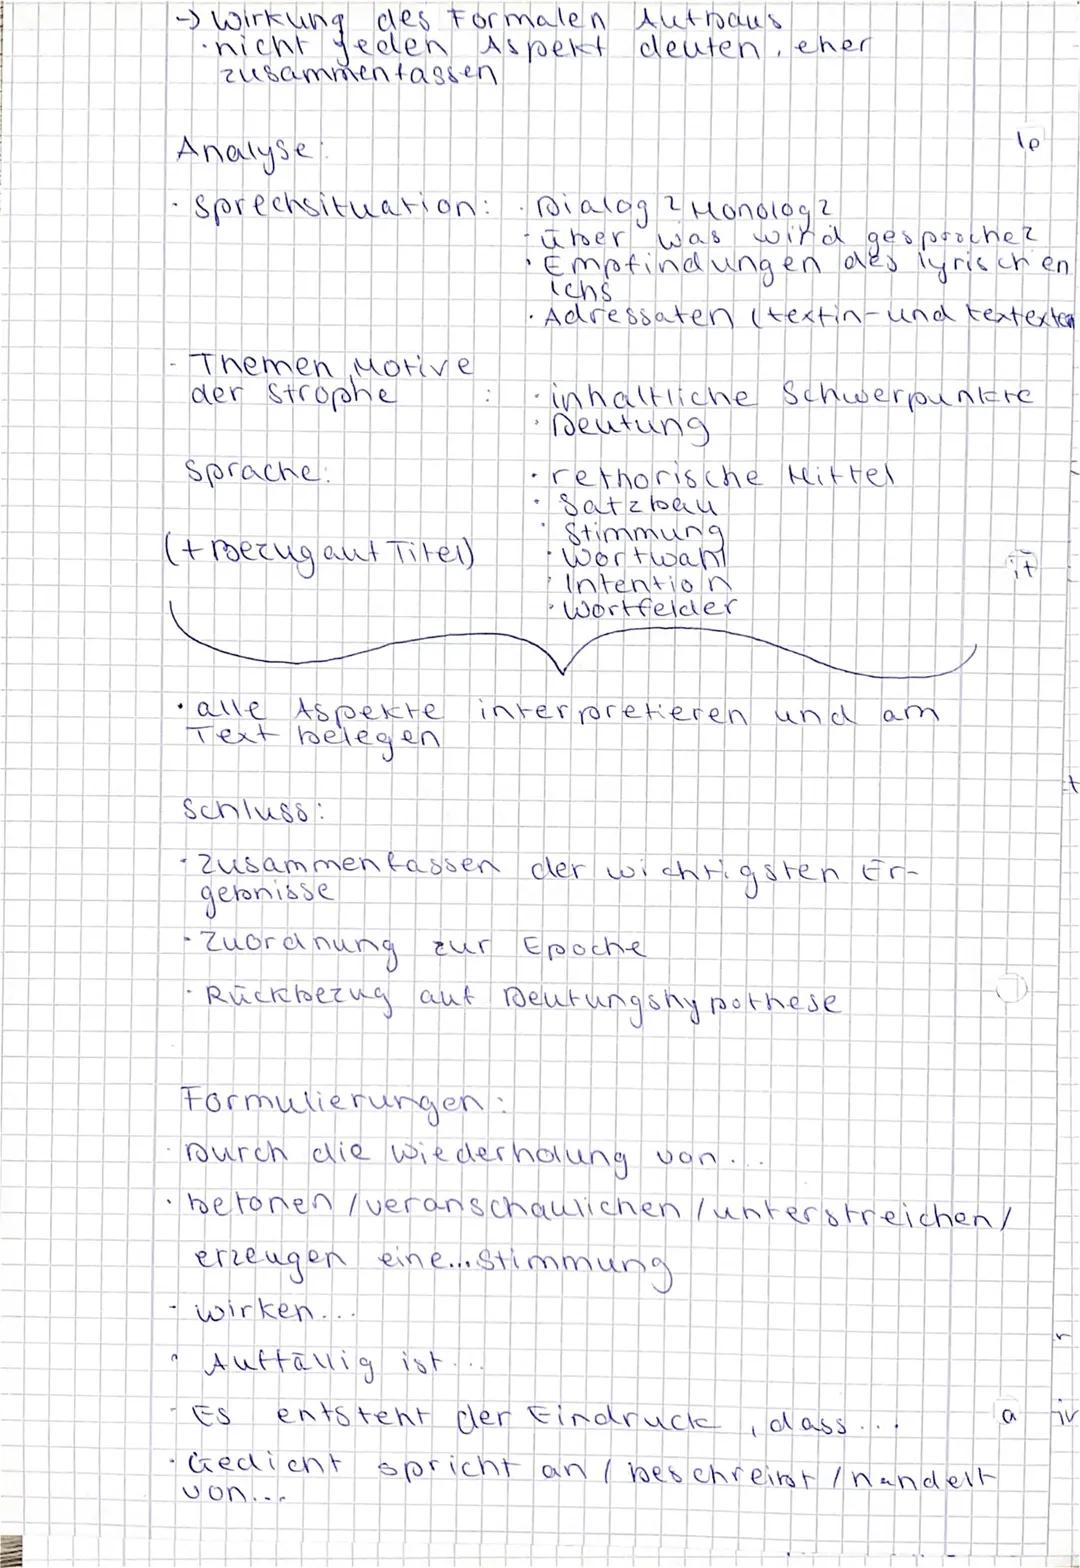 → Wirkung des Formalen Aufbaus
· nicht jeden Aspekt deuten, eher
zusammenfassen
Analyse:
· Sprechsituation: · Dialog? Monolog?
· über was wird gesproche?
· Empfindungen des lyrischen
Ichs
· Adressaten (textin- und textexter
- Themen, Motive
der Strophe : · inhaltliche Schwerpunkte
· Deutung
Sprache: · rethorische Mittel
· Satzbau
· Stimmung
(+ Bezug auf Titel) · Wortwahl
· Intention
· Wortfelder
· alle Aspekte interpretieren und am
Text belegen
Schluss:
· Zusammenfassen der wichtigsten Er-
gebnisse
· Zuordnung zur Epoche
· Rückbezug auf Deutungshypothese
Formulierungen:
· Durch die Wiederholung von...
· betonen / veranschaulichen / unterstreichen /
erzeugen eine... Stimmung
· wirken...
· Auffällig ist...
- Es entsteht der Eindruck, dass...
· Gedicht spricht an / beschreibt / handelt
von...